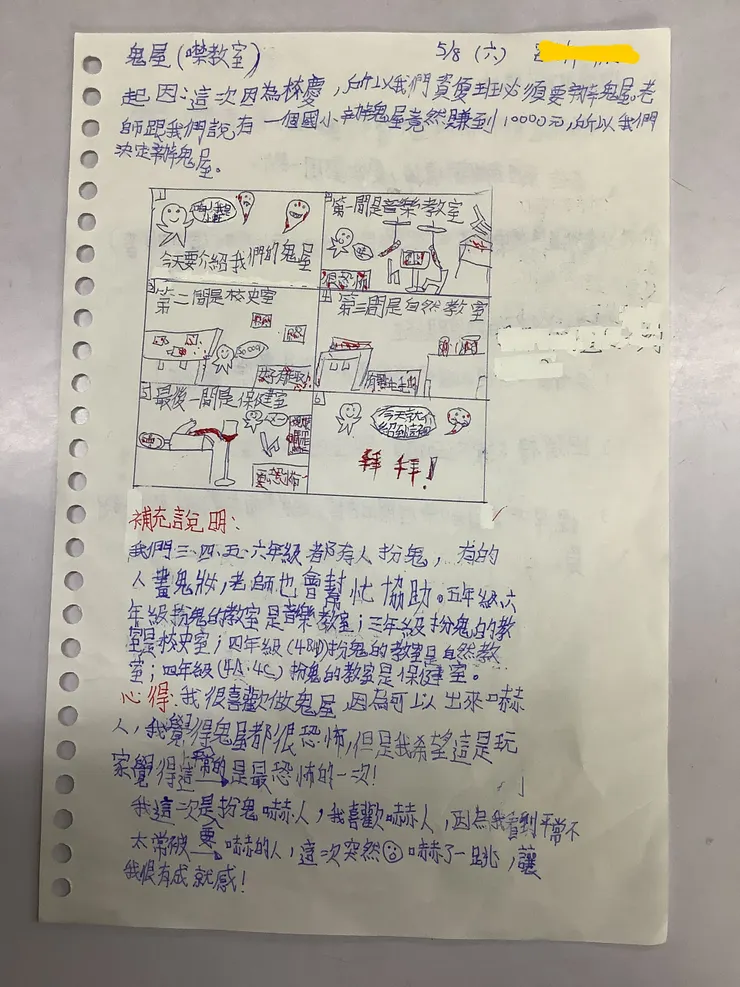 鬼屋(噤教室)
5/8 (六)
起因:這次因為校慶,所以我們資優班必須要辦鬼屋。老
師跟我們說有一個國小辦鬼屋竟然賺到10000元,所以我們
決定辦鬼屋。
1
今天要介紹我們的鬼屋
第一間是音樂教室
很恐怖
3
第二間是校史室
4
第三間是自然教室
5
最後一間是保健室
6
今天就介
紹到這裡
拜拜!
補充說明:
我們三、四、五、六年級都有人扮鬼,有的
人畫鬼妝,老師也會幫忙協助。五年級六
年級扮鬼的教室是音樂教室;三年級扮鬼的教
室是校史室;四年級(4B4D)扮鬼的教室是自然教
室;四年級(4A、4C)扮鬼的教室是保健室。
心得:我很喜歡做鬼屋,因為可以出來嚇
人,我覺得鬼屋都很恐怖,但是我希望這是玩
家覺得這是最恐怖的一次!
我這次是扮鬼嚇人,我喜歡嚇人,因為我看到平常不
太常被嚇的人,這次突然嚇了一跳,讓
我很有成就感!